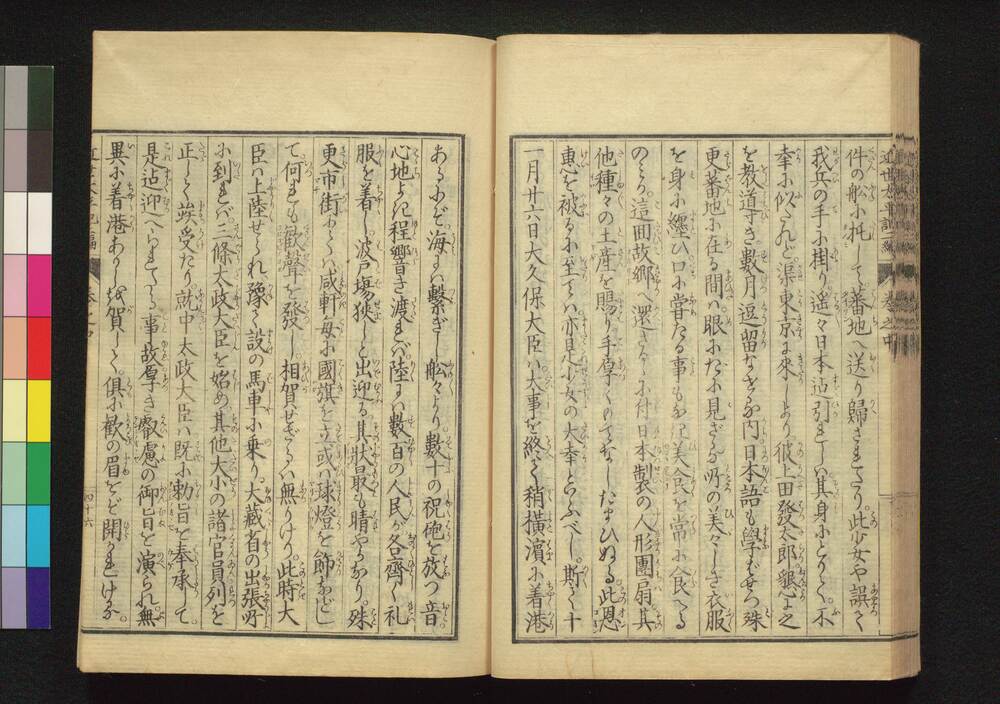 件の船に托して蕃地へ送り歸されたり。此少女や誤て
我兵の手に掛り。遙々日本迄引れしハ其身にとりてハ。不
幸に似たれど。渠東京に來しより。彼上田發太郎懇に之
を教導き。數月逗留なせる内。日本語も學バせつ。殊
更蕃地に在る間ハ。眼にだに見ざる所の美々しき衣服
を身に纏ひ。口に甞たる事もなき美食を常に食へる
のミか。這回故郷へ還さるゝに付。日本製の人形團扇。其
他種々の土産を賜り。手厚くもてなしたまひぬる。此恩
惠を被るに至てハ。亦是少女の大幸といふべし。斯くて十
一月廿六日大久保大臣ハ。大事を終て稍横濱に着港
あるにぞ。海にハ繋ぎし舩々より。數十の祝砲を放つ音
心地よき程響き渡れバ。陸にハ數百の人民が各齊く礼
服を着し。波戸塲狹しと出迎る。其狀最も晴やかなり。殊
更市街にてハ。咸軒毎に國旗を立。或ハ球燈を飾などし
て何れも歡聲を發し。相賀せざるハ無りけり。此時大
臣ハ上陸せられ。豫て設の馬車に乗り。大藏省の出張所
に到れバ。三條太政大臣を始め。其他大小の諸官員。列を
正して竢受たり。就中太政大臣ハ。既に勅旨を奉承して
是迄迎へられてハ。事故厚き叡慮の御旨を演られ。無
異に着港ありしを賀して。倶に歡の眉をぞ開かれける。
四十六